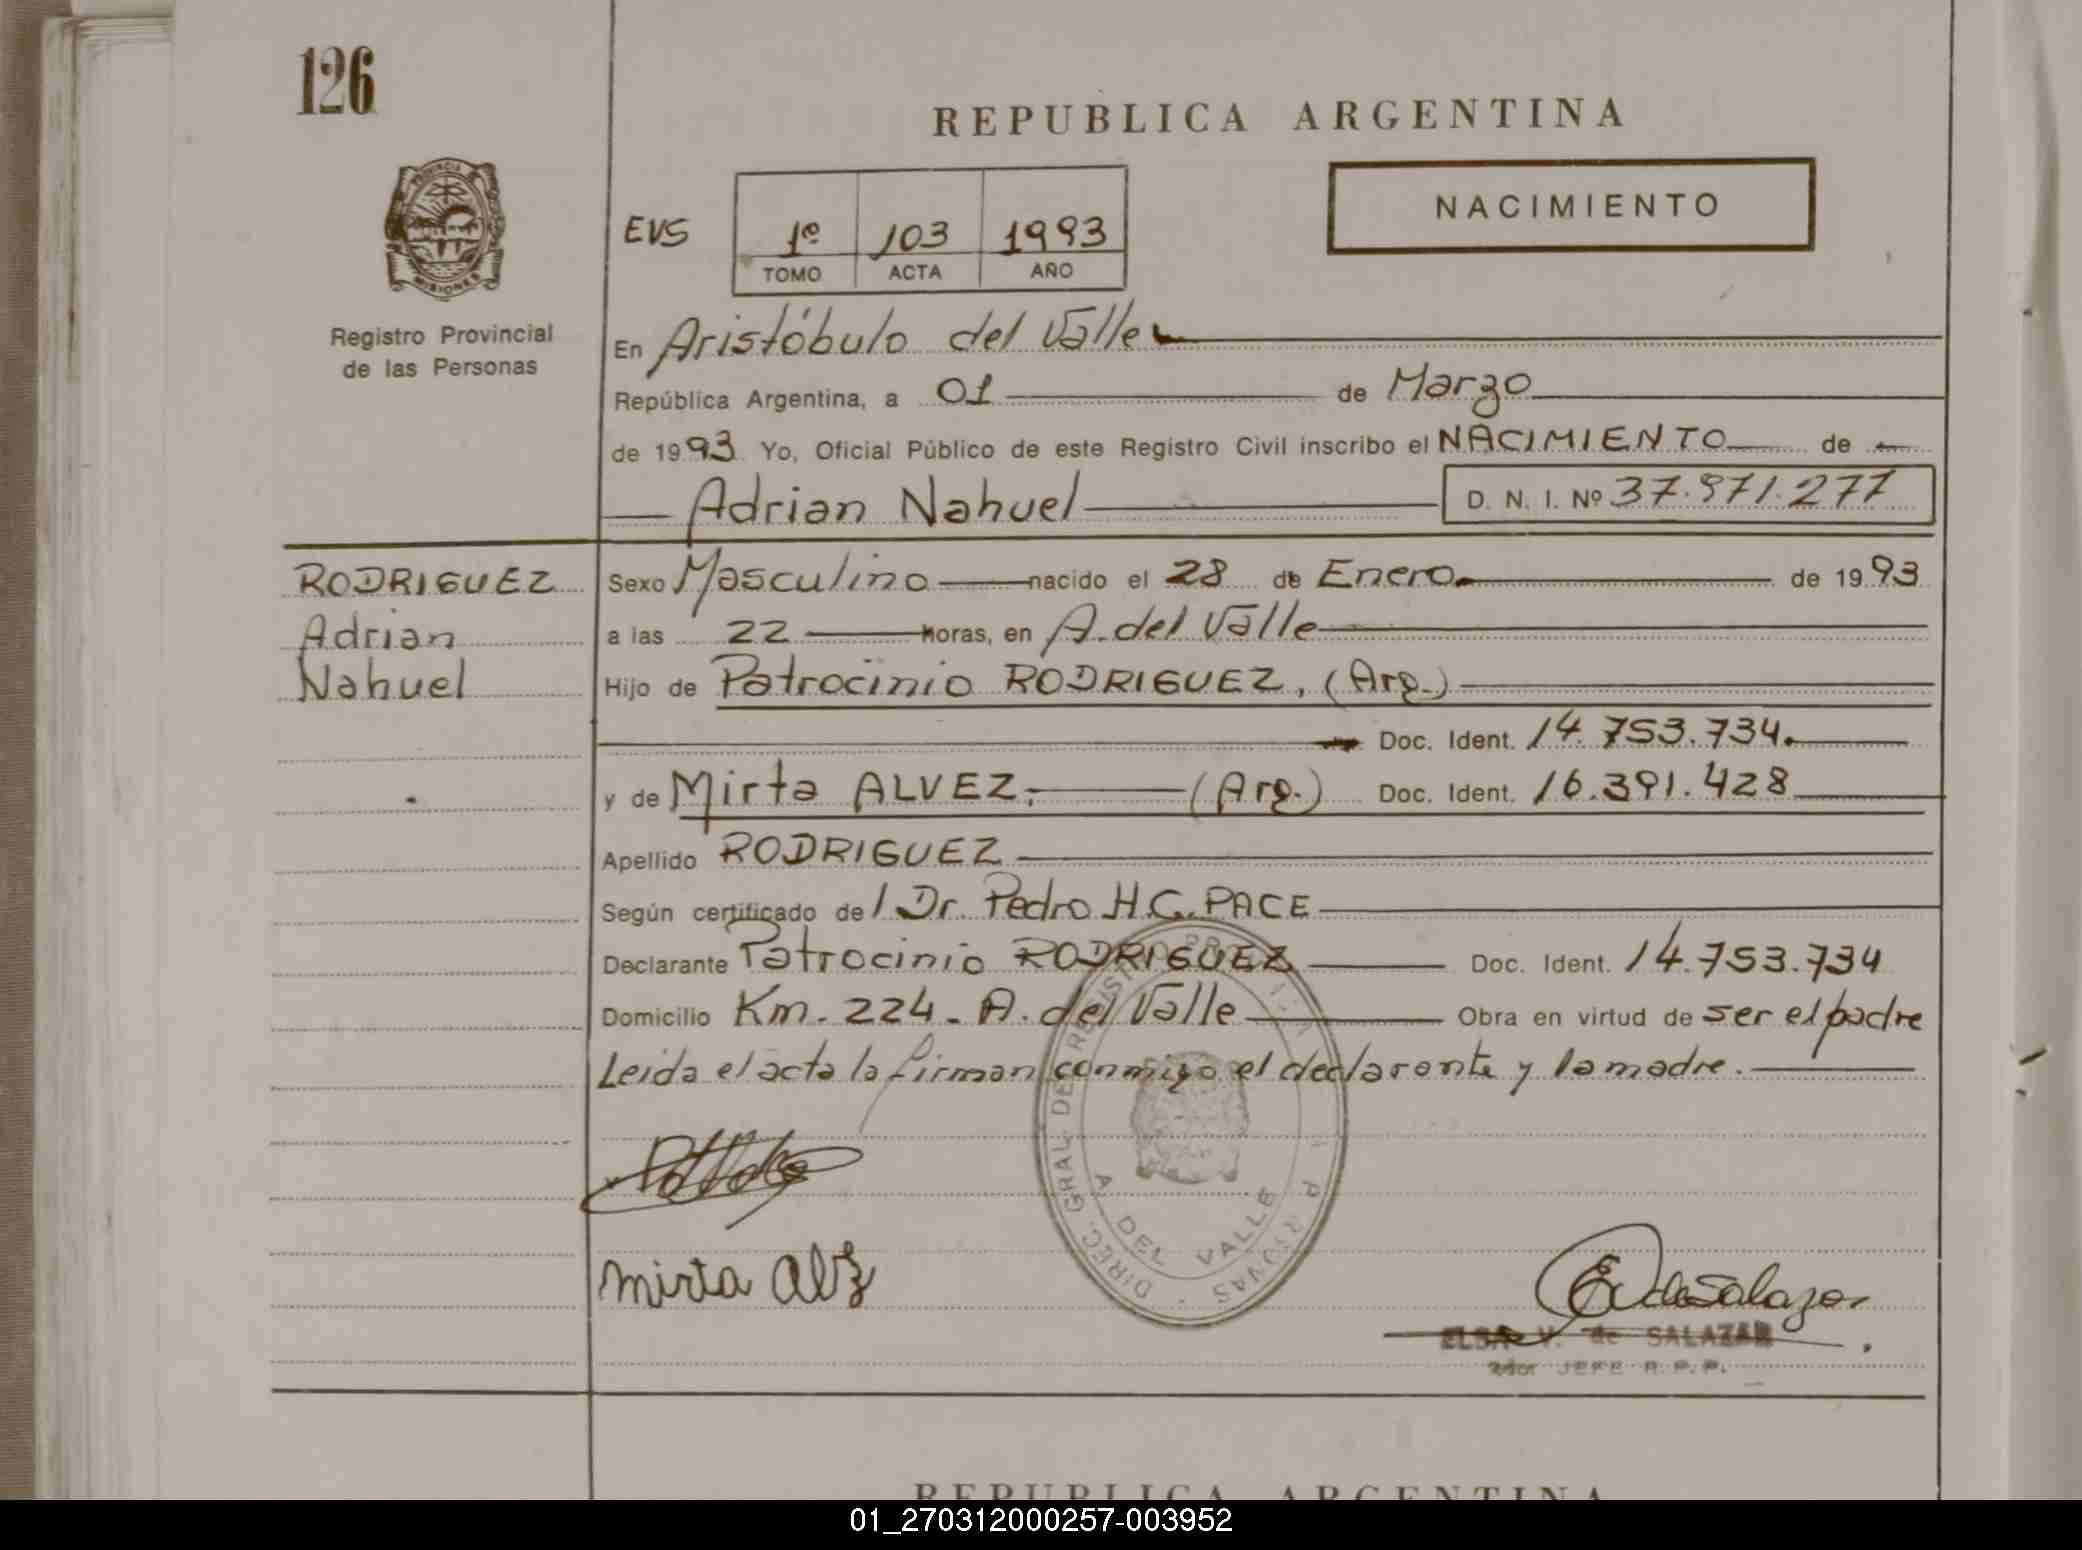 126
REPUBLICA ARGENTINA
PROVINCIA
MISIONES
NACIMIENTO
EVS
1º 103 1993
TOMO ACTA AÑO
Registro Provincial
de las Personas
En Aristóbulo del Valle
República Argentina, a 01 de Marzo
de 1993 Yo, Oficial Público de este Registro Civil inscribo el NACIMIENTO de
Adrian Nahuel D. N. I. Nº 37.971.277
RODRIGUEZ
Adrian
Nahuel
Sexo Masculino nacido el 28 de Enero. de 1993
a las 22 horas, en A. del Valle
Hijo de Patrocinio RODRIGUEZ, (Arg.)
Doc. Ident. 14.753.734.
y de Mirta ALVEZ. (Arg.) Doc. Ident. 16.391.428
Apellido RODRIGUEZ
Según certificado de / Dr. Pedro H.C. PACE
Declarante Patrocinio RODRIGUEZ Doc. Ident. 14.753.734
Domicilio Km. 224 - A. del Valle Obra en virtud de ser el padre
Leida el acta la firman conmigo el declarante y la madre.
DIREC. GRAL. DE REGISTRO
A. DEL VALLE
mirta alvz
E V de Salazar
ELSA V. de SALAZAR
JEFE R.P.P.
REPUBLICA ARGENTINA
01_270312000257-003952